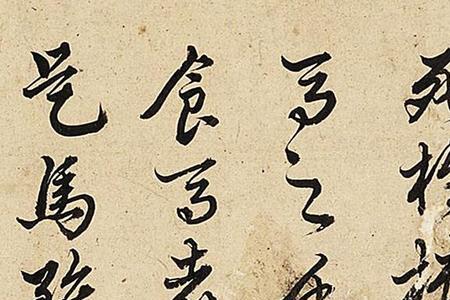 死槽櫪
馬之千
食馬者
是馬雖